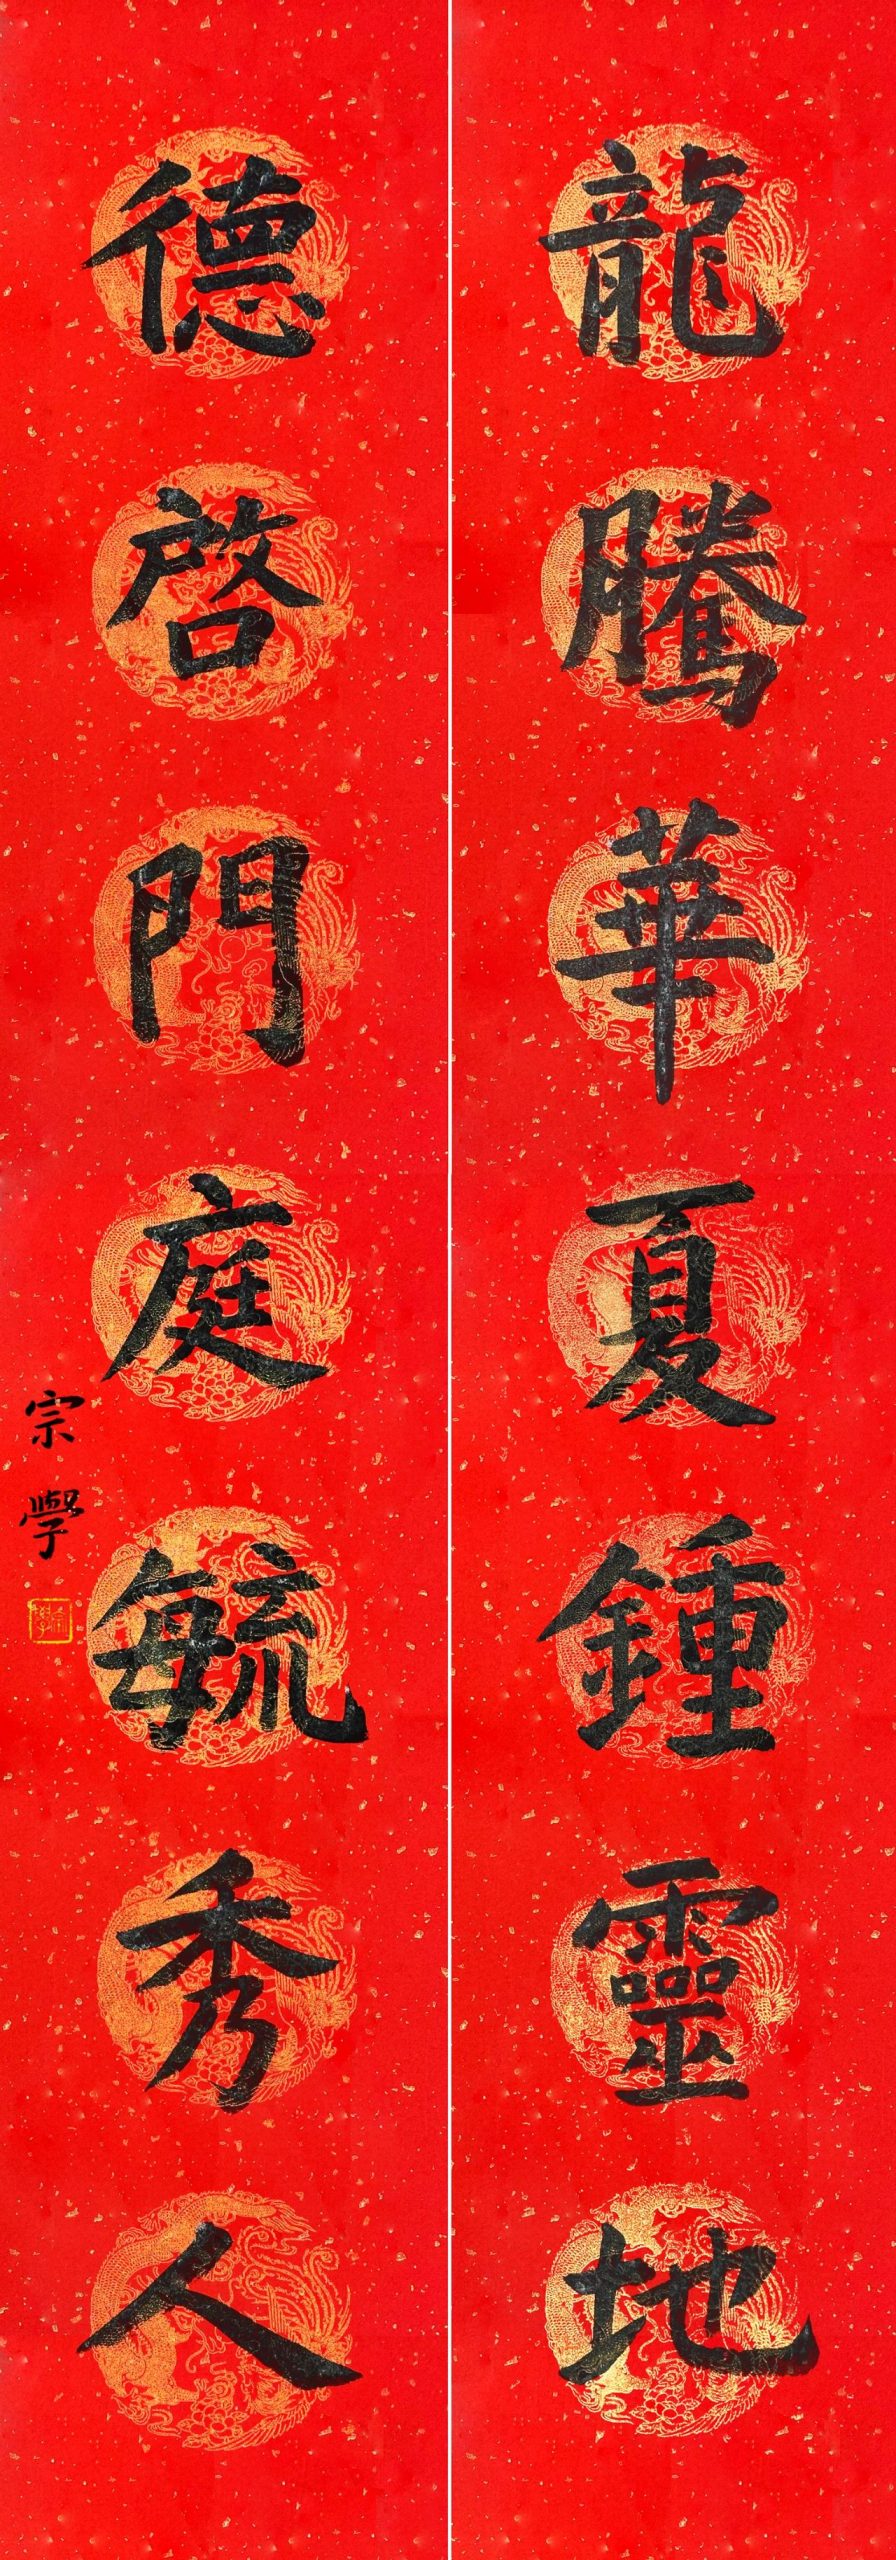 龍騰華夏鍾靈地
德啓門庭毓秀人
宗學